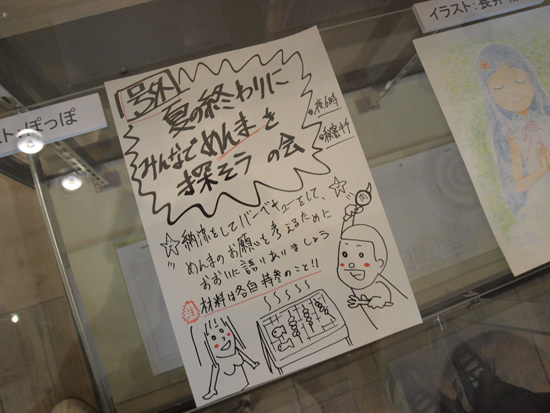 イラスト：長井
スト：ぽっぽ
号外
夏の終わりに
みんなでめんまを
探そうの会
夜6時
秘密キチ
☆納涼をしてバーベキューをして、☆
めんまのお願いを考えるために
おおいに語りありましょう
材料は各自持参のこと!!